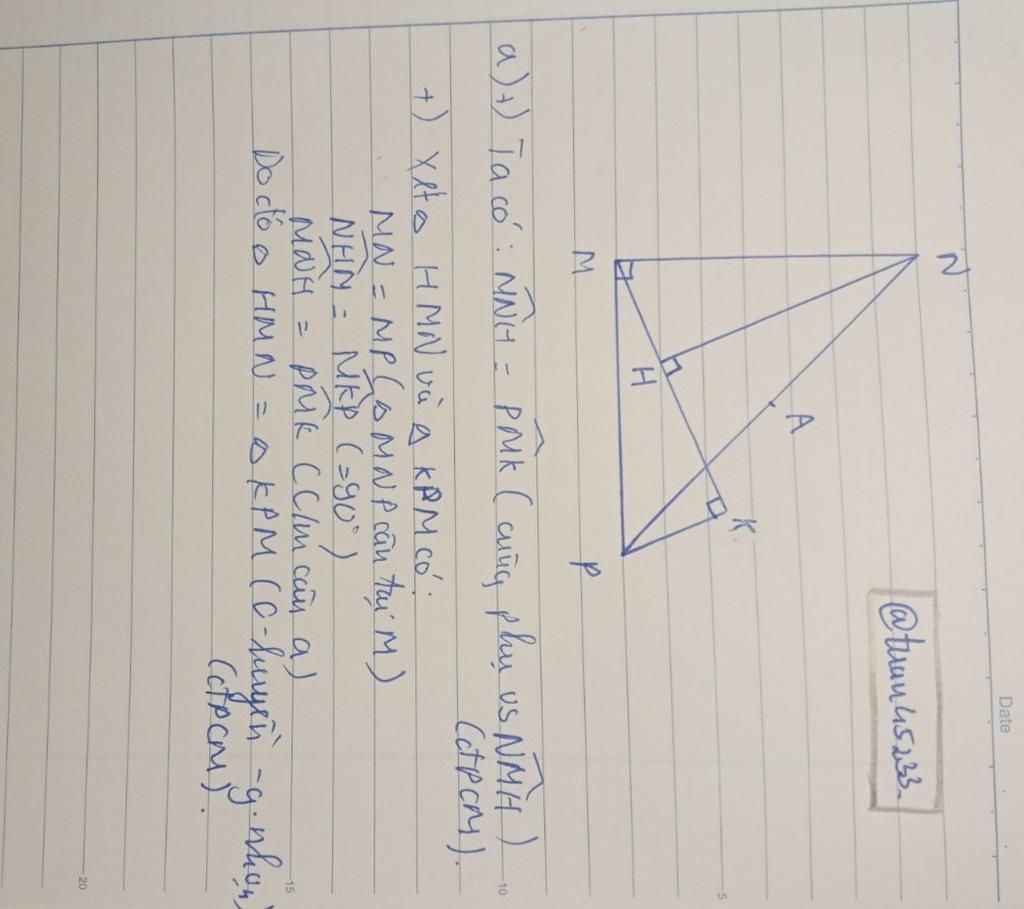 Date
@tuan45233
N
A
K
H
M
P
5
a) +) Ta có: MNH = PMK (cùng phụ vs NMH)
10
(đpcm).
+) Xét △ HMN và △ KPM có:
MN = MP (△ MNP cân tại M)
NHM = MKP (=90°)
MNH = PMK (Cm câu a)
15
Do đó △ HMN = △ KPM (C-huyền - g.nhọn)
(đpcm).
20